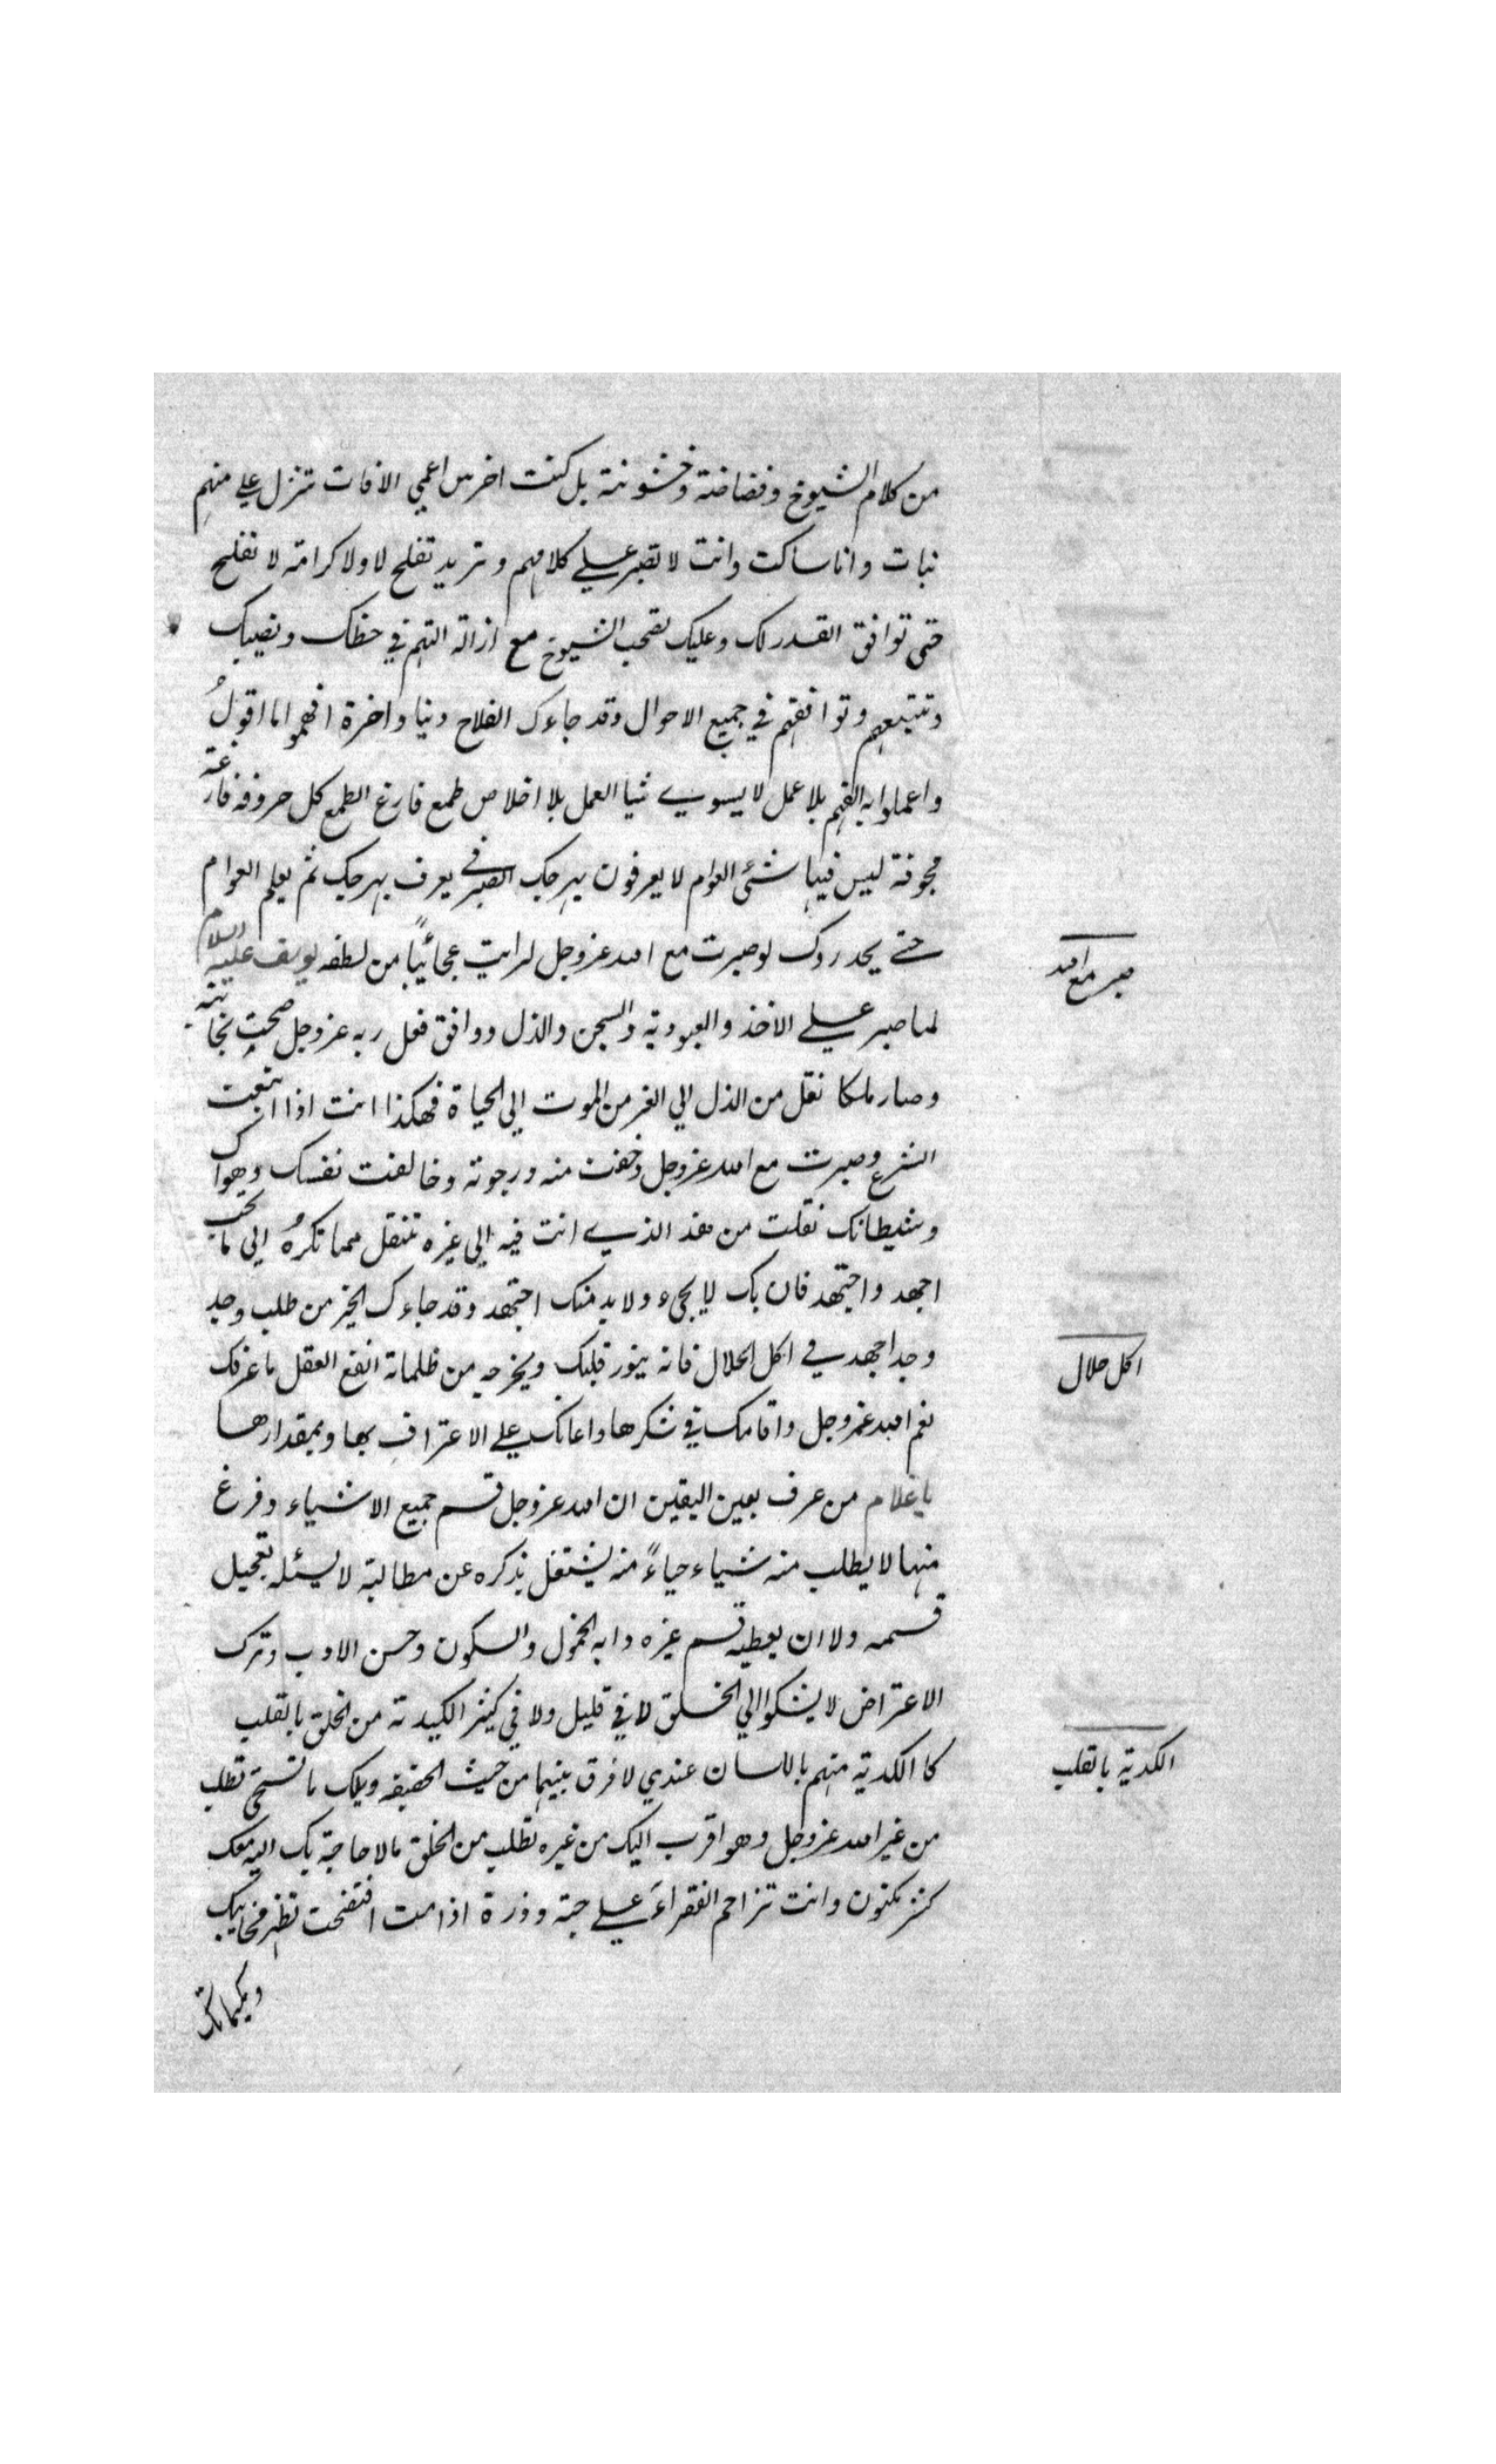 من كلام الشيوخ وفضاضة وخشونة بل كنت اخرس اعمي الافات تنزل علي منهم
نبات وانا ساكت وانت لا تصبر علي كلامهم وتريد تفلح لا ولا كرامة لا تفلح
حتى توافق القدر لك وعليك تصحب الشيوخ مع ازالة التهم في حظك ونصيبك
وتتبعهم وتوافقهم في جميع الاحوال وقد جاءك الفلاح دنيا واخرة افهموا ما اقولُ
واعملوا به الفهم بلا عمل لا يسوي شيا العمل بلا اخلاص طمع فارغ الطمع كل حروفه فارغة
مجوفة ليس فيها شئ العوام لا يعرفون بهرجك الصيرفي يعرف بهرجك ثم يعلم العوام
حتے يحذروك لو صبرت مع الله عزوجل لرايت عجائبًا من لطفه يوسف عليه السلام
صبر مع الله
لما صبر علي الاخذ والعبودية والسجن والذل ووافق فعل ربه عزوجل صحت نجابته
وصار ملكا نقل من الذل الي العز من الموت الي الحياة فهكذا انت اذا اتبعت
الشرع وصبرت مع الله عزوجل وخفت منه ورجوته وخالفت نفسك وهواك
وشيطانك نقلت من هذا الذي انت فيه الي غيره تنتقل مما تكرهُ الي ما تحب
اجهد واجتهد فان بك لا يجيء ولا بد منك اجتهد وقد جاءك الخير من طلب وجد
وجد اجهد في اكل الحلال فانه ينور قلبك ويخرجه من ظلماته انفع العقل ما عرفك
اكل حلال
نعم الله عزوجل واقامك في شكرها واعانك علي الاعتراف بها وبمقدارها
يا غلام من عرف بعين اليقين ان الله عزوجل قسم جميع الاشياء وفرغ
منها لا يطلب منه شياء حياءً منه يشتغل بذكره عن مطالبة لا يسئله تعجيل
قسمه ولا ان يعطيه قسم غيره دابه الخمول والسكون وحسن الادب وترك
الاعتراض لا يشكوا الي الخلق لا في قليل ولا في كثير الكيدية من الخلق بالقلب
كا الكدية منهم باللسان عندي لا فرق بينهما من حيث الحقيقه ويلك ما تستحي تطلب
الكدية بالقلب
من غير الله عزوجل وهو اقرب اليك من غيره تطلب من الخلق ما لا حاجة بك اليه معك
كنز مكنون وانت تزاحم الفقراءَ علي حبة وذرة اذا مت افتضحت تظهر مخابيك